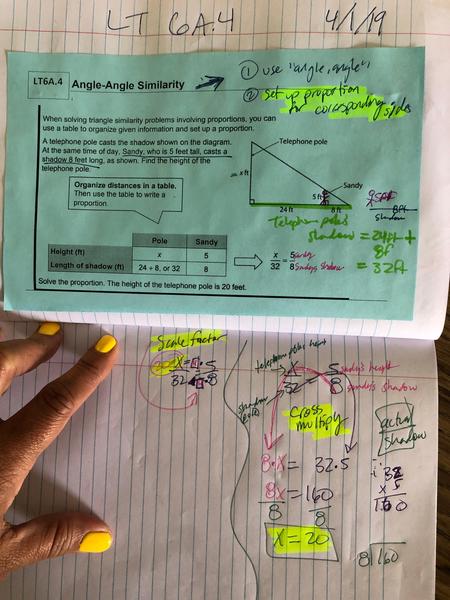 LT 6A.4 4/1/19
LT6A.4 Angle-Angle Similarity
① use "angle, angle",
② set up proportion
for corresponding sides
When solving triangle similarity problems involving proportions, you can
use a table to organize given information and set up a proportion.
A telephone pole casts the shadow shown on the diagram.
At the same time of day, Sandy, who is 5 feet tall, casts a
shadow 8 feet long, as shown. Find the height of the
telephone pole.
Telephone pole
x ft
Sandy
5 ft
24 ft 8 ft
shadow
8ft
Telephone pole's
shadow = 24ft +
8ft
= 32ft
Organize distances in a table.
Then use the table to write a
proportion.
Pole Sandy
Height (ft) x 5
Length of shadow (ft) 24 + 8, or 32 8
x/32 = 5/8
Sandy
Sandy's shadow
Solve the proportion. The height of the telephone pole is 20 feet.
Scale Factor
x = 4 · 5
32 4 · 8
telephone pole height
x = 5 Sandy's height
32 8 Sandy's shadow
shadow
pole
Cross
multiply
8·x = 32·5
8x = 160
8 8
x = 20
actual
shadow
32
x 5
160
8)160